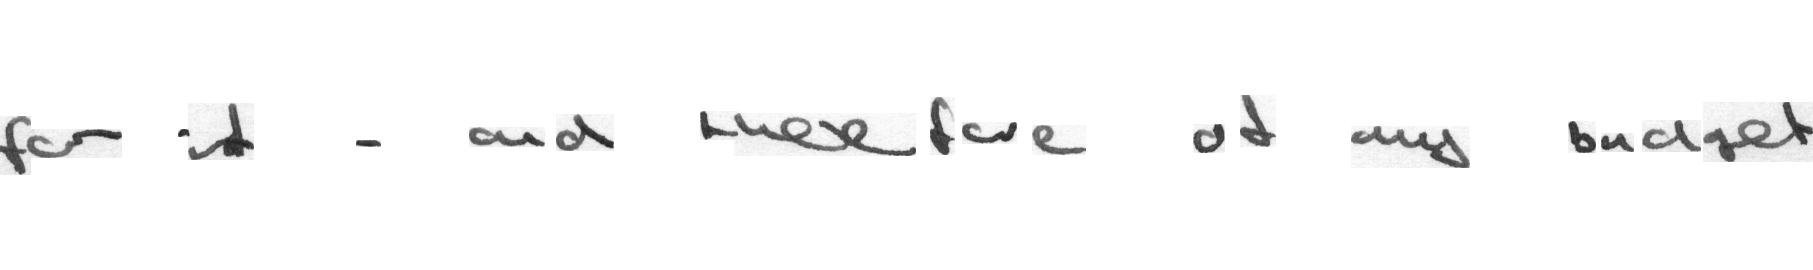 for it - and therefore of any budget